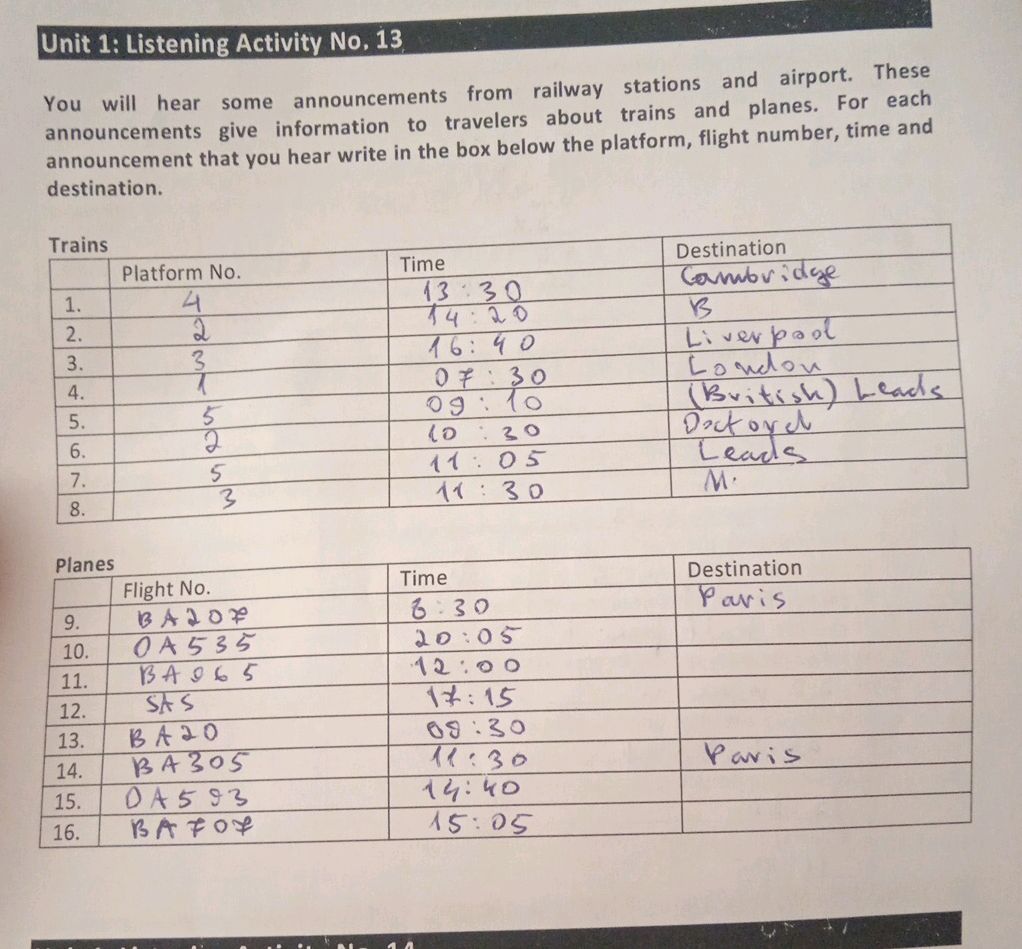 Unit 1: Listening Activity No. 13
You will hear some announcements from railway stations and airport. These
announcements give information to travelers about trains and planes. For each
announcement that you hear write in the box below the platform, flight number, time and
destination.
Trains
Platform No. Time Destination
1. 4 13:30 Cambridge
2. 2 14:20 B
3. 3 16:40 Liverpool
4. 1 07:30 London
5. 5 09:10 (British) Leads
6. 2 10:30
7. 5 11:05 Leads
8. 3 11:30 M.
Planes
Flight No. Time Destination
9. BA207 8:30 Paris
10. OA535 20:05
11. BA965 12:00
12. SAS 17:15
13. BA20 09:30
14. BA305 11:30 Paris
15. OA593 14:40
16. BA707 15:05